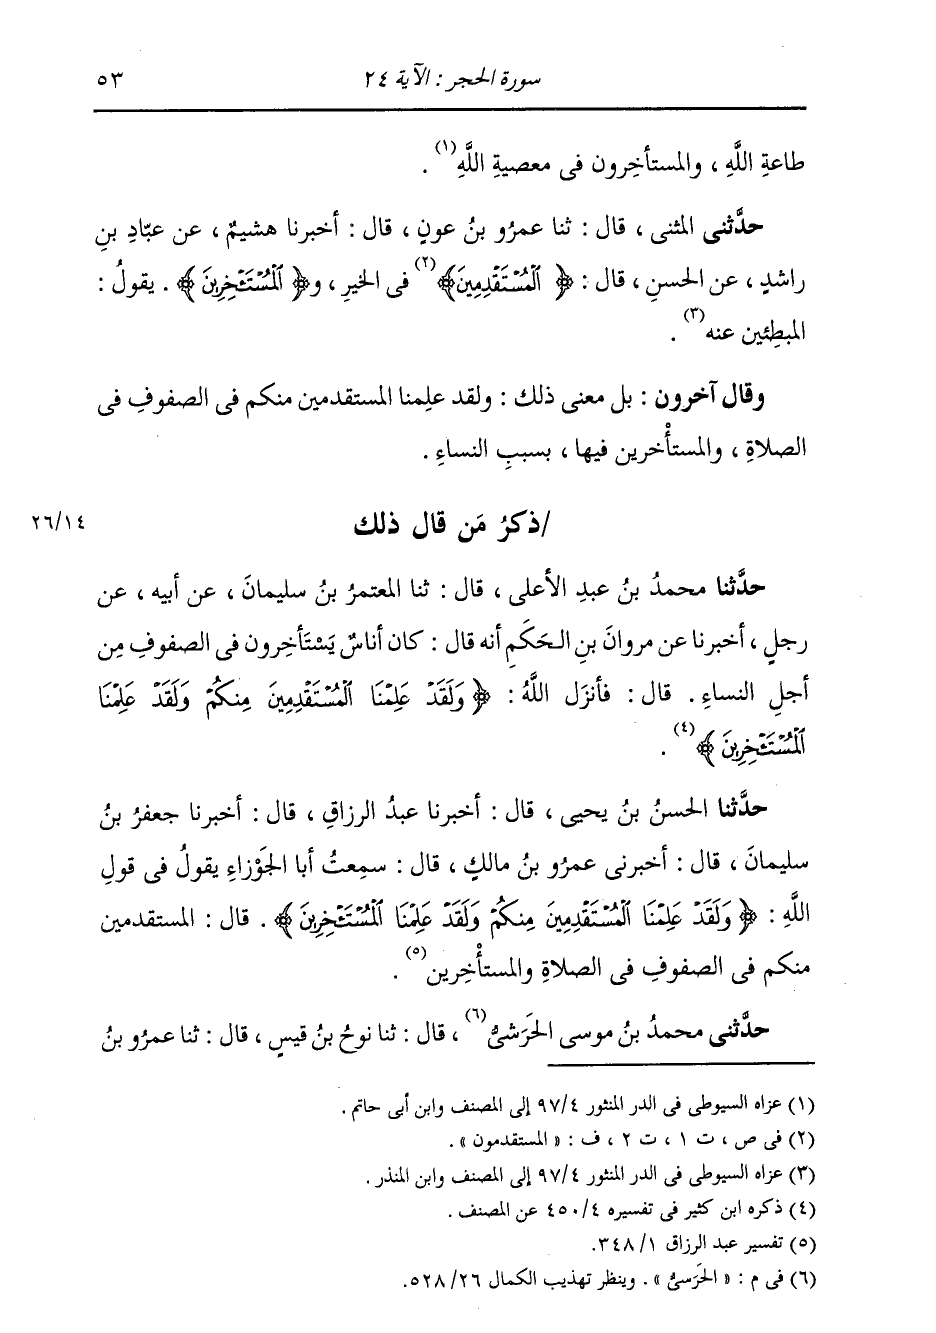 سورة الحجر : الآية ٢٤ ٥٣
طاعةِ اللَّهِ ، والمستأخِرون فى معصيةِ اللَّهِ(١) .
حدَّثنى المثنى ، قال : ثنا عمرُو بنُ عونٍ ، قال : أخبرنا هشيمٌ ، عن عبّادِ بنِ
راشدٍ ، عن الحسنِ ، قال : ﴿ ٱلْمُسْتَقْدِمِينَ﴾(٢) فى الخيرِ ، و﴿ ٱلْمُسْتَـْٔخِرِينَ ﴾ . يقولُ :
المبطِئين عنه(٣) .
وقال آخرون : بل معنى ذلك : ولقد علِمنا المستقدمين منكم فى الصفوفِ فى
الصلاةِ ، والمستأْخرين فيها ، بسببِ النساءِ .
/ذكرُ مَن قال ذلك ٢٦/١٤
حدَّثنا محمدُ بنُ عبدِ الأعلى ، قال : ثنا المعتمرُ بنُ سليمانَ ، عن أبيه ، عن
رجلٍ ، أخبرنا عن مروانَ بنِ الحَكَمِ أنه قال : كان أناسٌ يَسْتَأخِرون فى الصفوفِ مِن
أجلِ النساءِ . قال : فأنزَل اللَّهُ : ﴿ وَلَقَدْ عَلِمْنَا ٱلْمُسْتَقْدِمِينَ مِنكُمْ وَلَقَدْ عَلِمْنَا
ٱلْمُسْتَـْٔخِرِينَ ﴾(٤) .
حدَّثنا الحسنُ بنُ يحيى ، قال : أخبرنا عبدُ الرزاقِ ، قال : أخبرنا جعفرُ بنُ
سليمانَ ، قال : أخبرنى عمرُو بنُ مالكٍ ، قال : سمِعتُ أبا الجَوْزاءِ يقولُ فى قولِ
اللَّهِ : ﴿ وَلَقَدْ عَلِمْنَا ٱلْمُسْتَقْدِمِينَ مِنكُمْ وَلَقَدْ عَلِمْنَا ٱلْمُسْتَـْٔخِرِينَ ﴾ . قال : المستقدمين
منكم فى الصفوفِ فى الصلاةِ والمستأْخِرين(٥) .
حدَّثنى محمدُ بنُ موسى الحَرَشىُّ(٦) ، قال : ثنا نوحُ بنُ قيسٍ ، قال : ثنا عمرُو بنُ
(١) عزاه السيوطى فى الدر المنثور ٩٧/٤ إلى المصنف وابن أبى حاتم .
(٢) فى ص ، ت ١ ، ت ٢ ، ف : « المستقدمون » .
(٣) عزاه السيوطى فى الدر المنثور ٩٧/٤ إلى المصنف وابن المنذر .
(٤) ذكره ابن كثير فى تفسيره ٤٥٠/٤ عن المصنف .
(٥) تفسير عبد الرزاق ٣٤٨/١.
(٦) فى م : « الحَرَسىُّ » . وينظر تهذيب الكمال ٥٢٨/٢٦.